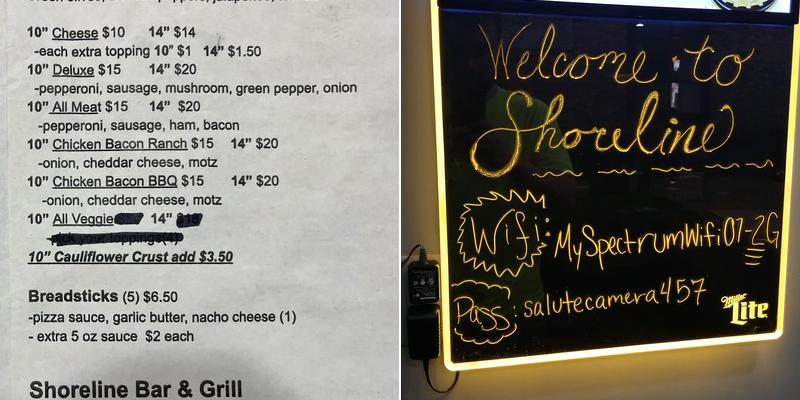 10" Cheese $10 14" $14
-each extra topping 10" $1 14" $1.50
10" Deluxe $15 14" $20
-pepperoni, sausage, mushroom, green pepper, onion
10" All Meat $15 14" $20
-pepperoni, sausage, ham, bacon
10" Chicken Bacon Ranch $15 14" $20
-onion, cheddar cheese, motz
10" Chicken Bacon BBQ $15 14" $20
-onion, cheddar cheese, motz
10" All Veggie 14" $18
-pick your toppings(4)
10" Cauliflower Crust add $3.50
Breadsticks (5) $6.50
-pizza sauce, garlic butter, nacho cheese (1)
- extra 5 oz sauce $2 each
Shoreline Bar & Grill
Welcome to
Shoreline
Wifi: MySpectrumWifi07-2G
Pass: salutecamera457
Miller
Lite